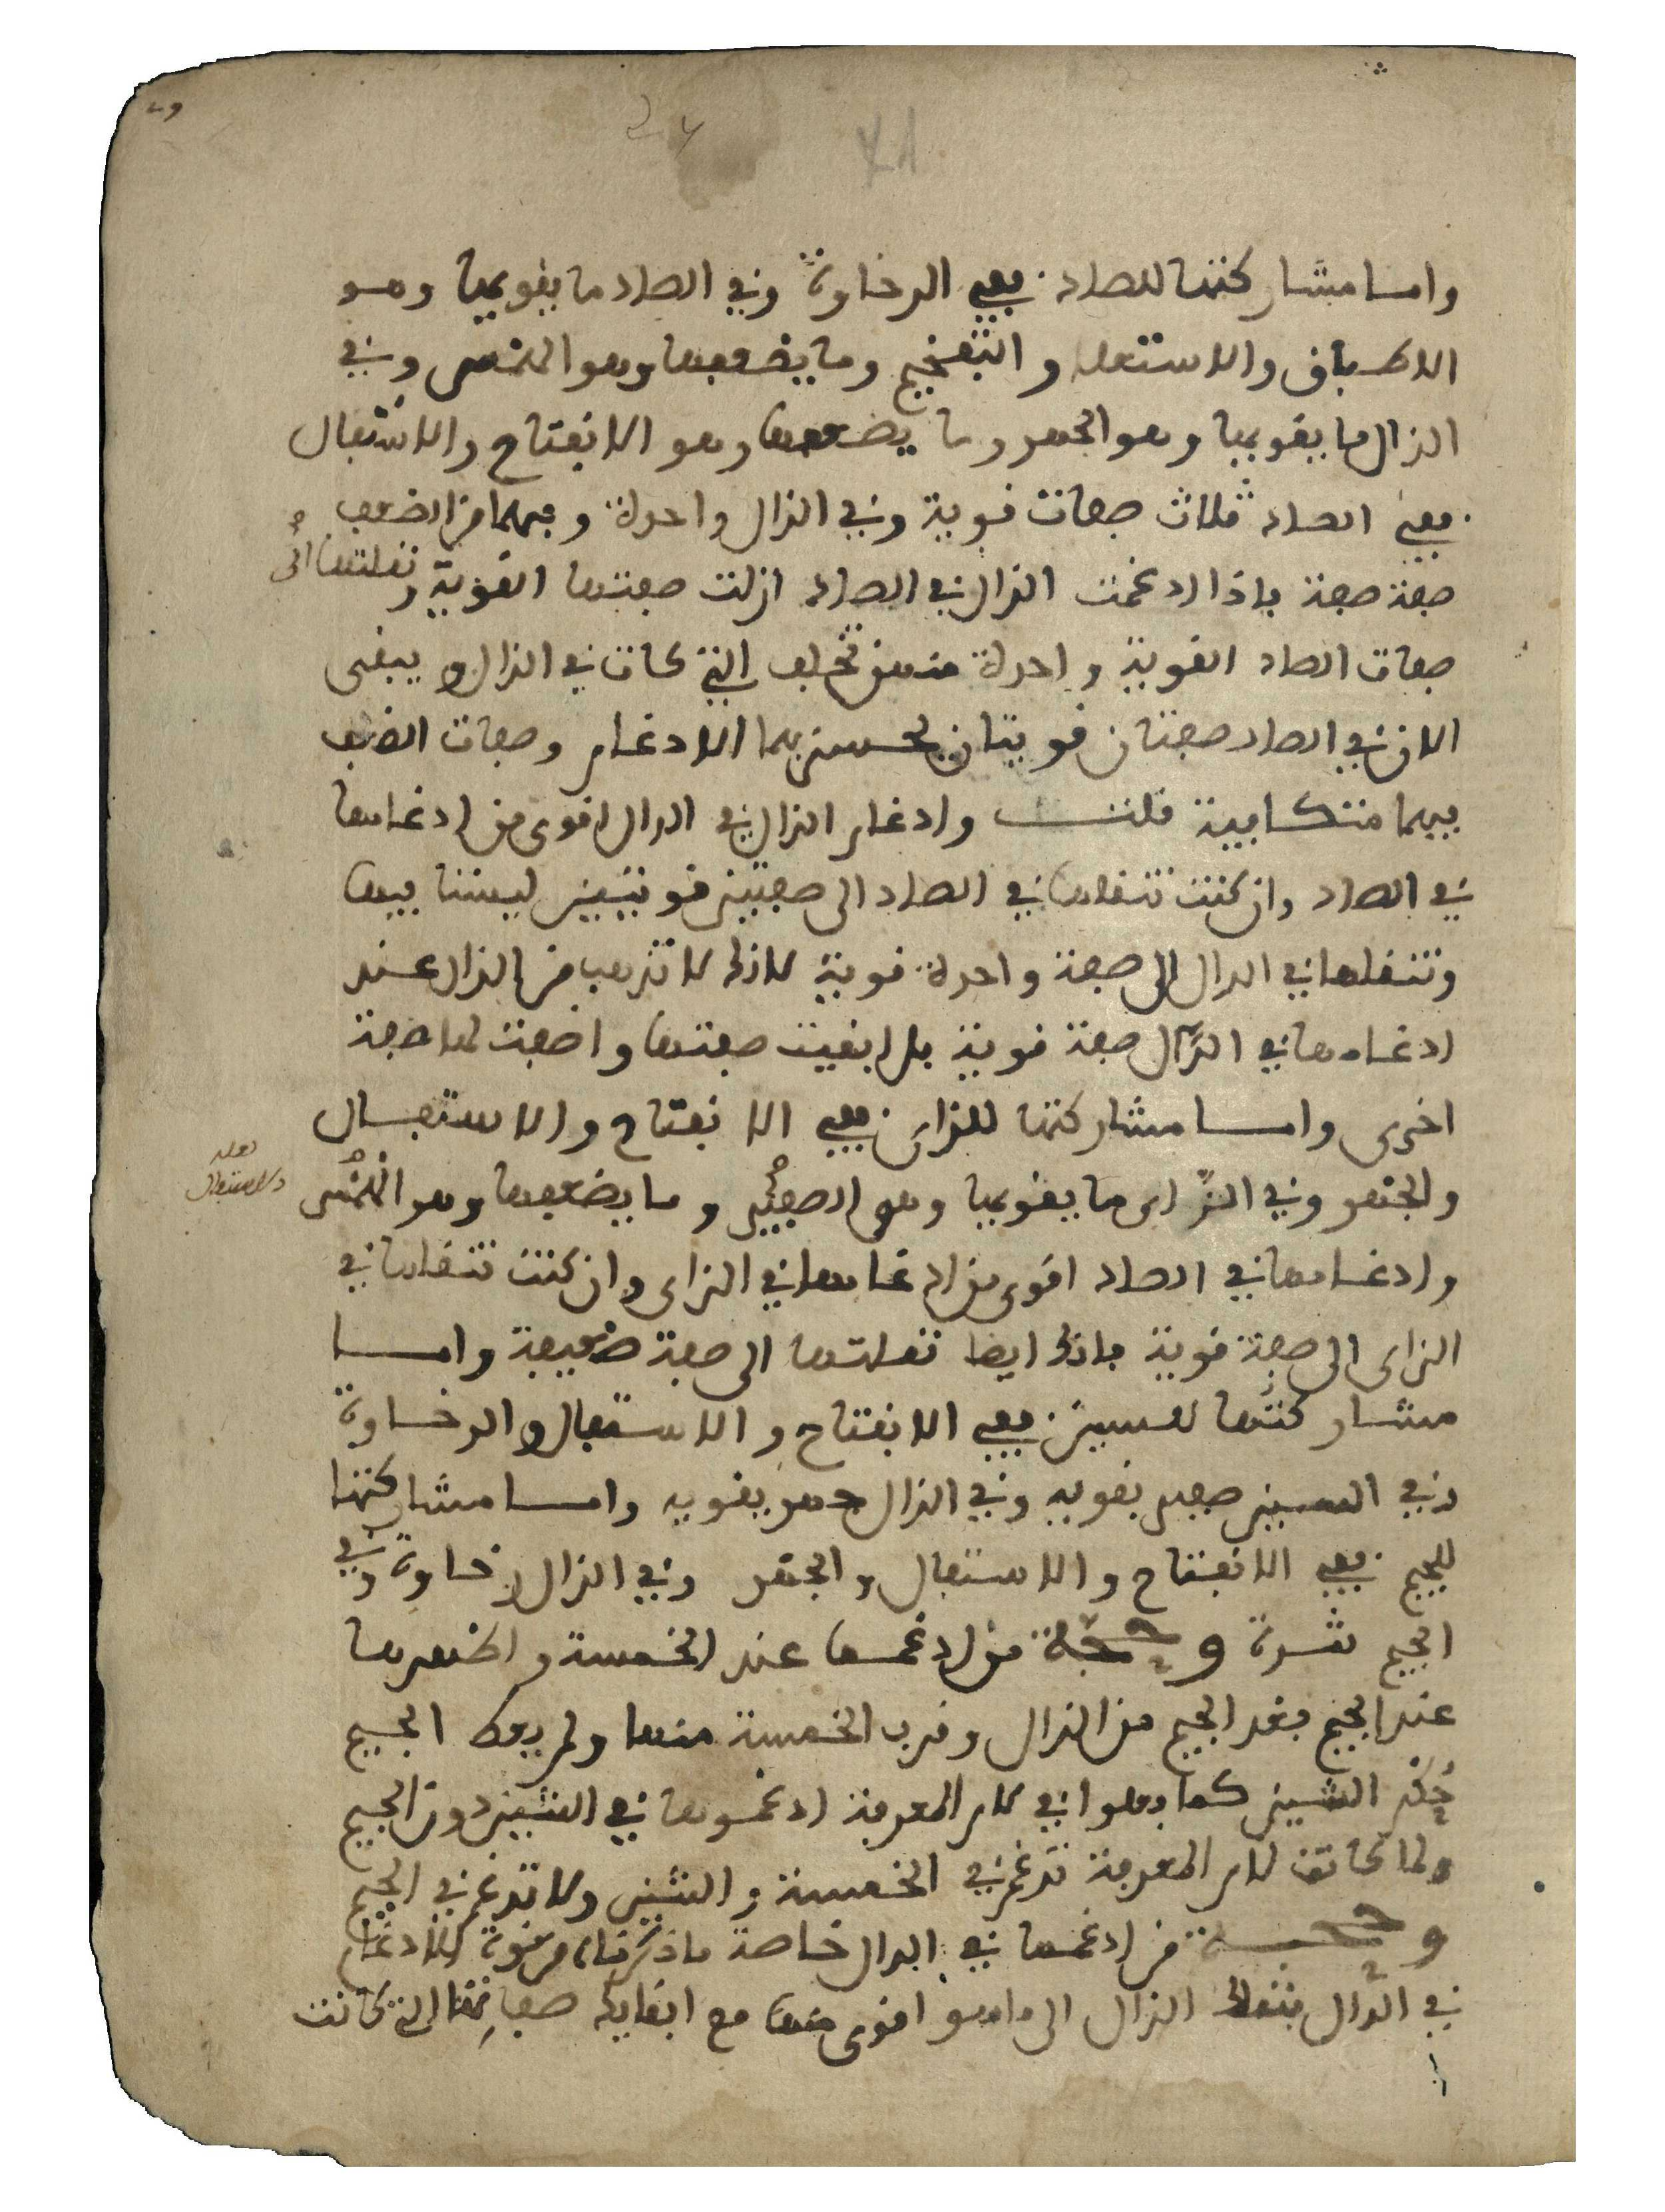 وامـا مشاركتها للصاد ففي الرخاوة وفي الصاد ما يقويها وهو
الاطباق والاستعلا والتفخيم وما يضعفها وهو الهمس وفي
الذال ما يقويها وهو الجهر وما يضعفها وهو الانفتاح والاستفال
ففي الصاد ثلاث صفات قوية وفي الذال واحدة وفيهما من الضعف
صفة صفة فاذا ادغمت الذال في الصاد ازلت صفتها القوية ونقلتها الى
صفات الصاد القوية واحدة منهن تخلف التي كانت في الذال ويبقى
الان في الصاد صفتان قويتان يحسن بهما الادغام وصفات الضعف
فيهما متكافية قلت وادغام الذال في الدال اقوى من ادغامها
في الصاد وان كنت تنقلها في الصاد الى صفتين قويتين ليستا فيها
وتنقلها في الدال الى صفة واحدة قوية لانك لا تذهب من الذال عند
ادغامها في الدال صفة قوية بل ابقيت صفتها واضفت لها صفة
اخرى وامـا مشاركتها للزاى ففي الانفتاح والاستفال
والجهر وفي الزاى ما يقويها وهو الصفير وما يضعفها وهو الهمس
لعله
والاستفال
وادغامها في الصاد اقوى من ادغامها في الزاى وان كنت تنقلها في
الزاى الى صفة قوية فانك ايضا نقلتها الى صفة ضعيفة وامـا
مشاركتها للسين ففي الانفتاح والاستفال والرخاوة
وفي السين صفير يقويه وفي الذال جهر يقويه وامـا مشاركتها
للجيم ففي الانفتاح والاستفال والجهر وفي الذال رخاوة وفي
الجيم شدة وحجة من ادغمها عند الخمسة واظهرها
عند الجيم بعد الجيم من الذال وقرب الخمسة منها ولم يعط الجيم
حكم الشين كما فعلوا في لام المعرفة ادغموها في الشين دون الجيم
ولما كانت لام المعرفة تدغم في الخمسة والشين ولا تدغم في الجيم
وحجـة من ادغمها في الدال خاصة ما ذكرناه من قوة الادغام
في الدال بنقلك الذال الى ما هو اقوى منها مع ابقايك صفاتها التي كانت